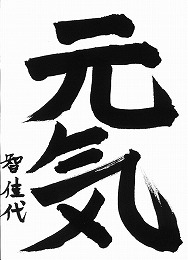 元気
智佳代